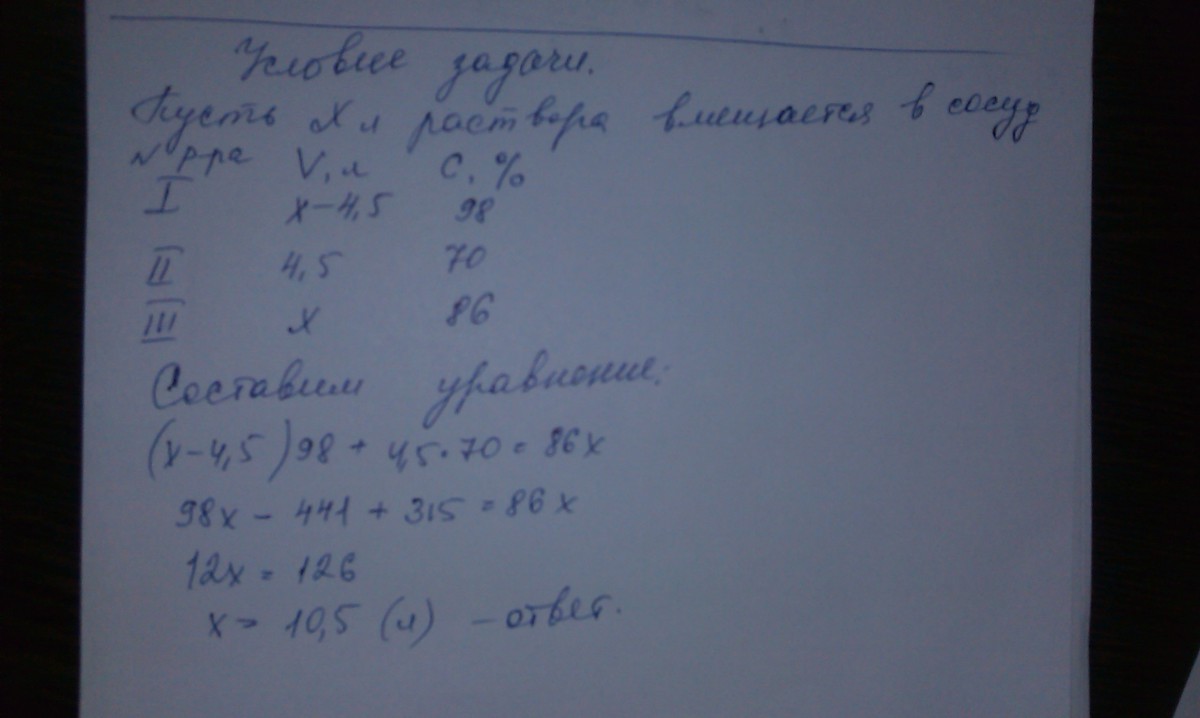 Условие задачи.
Пусть X л раствора вмещается в сосуд
N р-ра V, л C, %
I x-4,5 98
II 4,5 70
III X 86
Составим уравнение:
(x-4,5)98 + 4,5·70 = 86x
98x - 441 + 315 = 86x
12x = 126
x = 10,5 (л) - ответ.